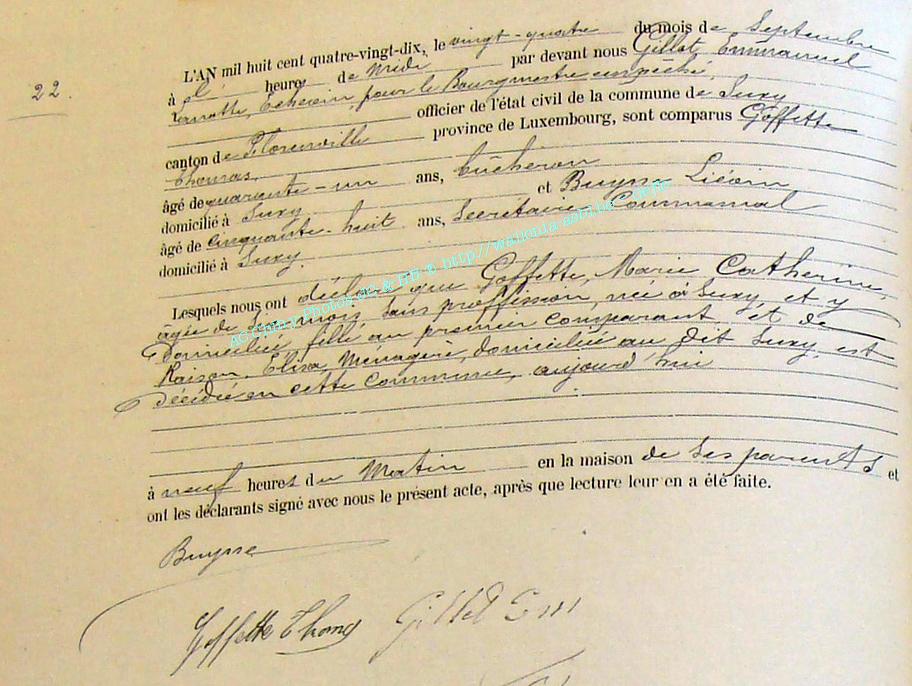 22.
L'AN mil huit cent quatre-vingt-dix, le vingt-quatre du mois de Septembre
à heure de Midi par devant nous Gillet Emmanuel
Echevin, pour le Bourgmestre empêché,
officier de l'état civil de la commune de Suxy
canton de Florenville province de Luxembourg, sont comparus Goffette
Thomas,
âgé de quarante-un ans, bûcheron
domicilié à Suxy. et Buysse Liévin
âgé de cinquante-huit ans, Secrétaire Communal
domicilié à Suxy.
Lesquels nous ont déclaré que Goffette, Marie Catherine,
âgée de mois, sans proffession, née à Suxy, et y
domiciliée, fille au premier comparant et de
Raison, Elisa, Ménagère, domiciliée au dit Suxy, est
décédée en cette Commune, aujourd'hui
à neuf heures du Matin en la maison de ses parents et
ont les déclarants signé avec nous le présent acte, après que lecture leur en a été faite.
Buysse
Goffette Thomas Gillet Em